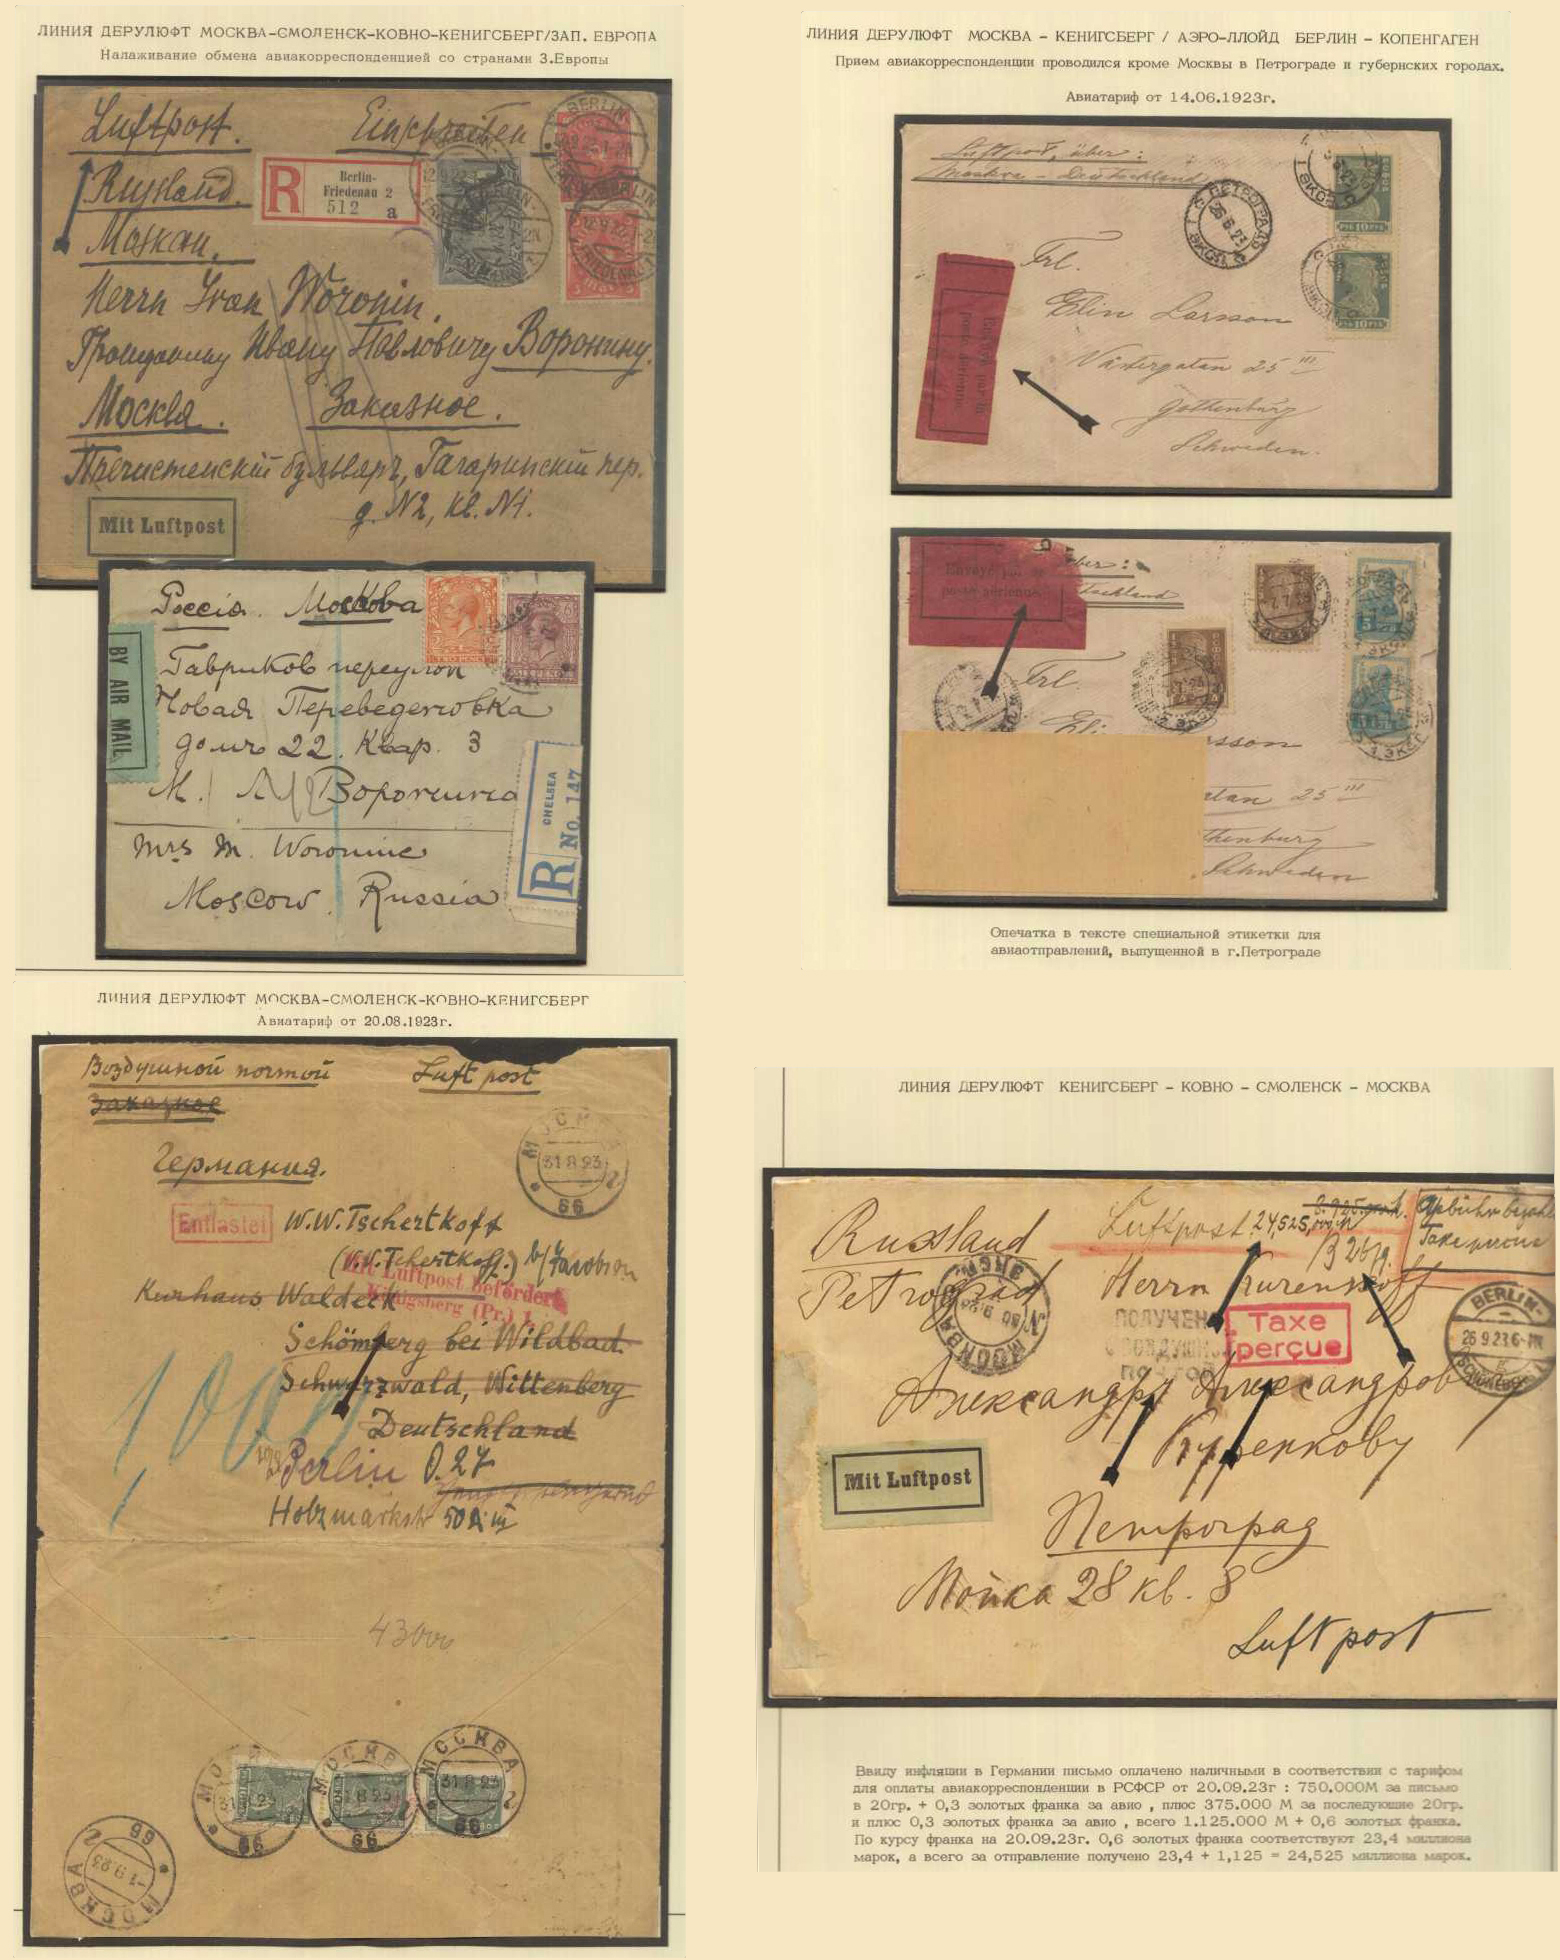 ЛИНИЯ ДЕРУЛЮФТ МОСКВА-СМОЛЕНСК-КОВНО-КЕНИГСБЕРГ/ЗАП. ЕВРОПА
Налаживание обмена авиакорреспонденцией со странами З.Европы
Luftpost. Einschreiben
Russland.
Berlin-
Friedenau 2
R 512 a
Москаи.
Herrn Ivan Woronin.
Гражданину Ивану Павловичу Воронину.
Москва. Заказное.
Пречистенскій бульваръ, Гагаринскій пер.
д. N2, кв. N1.
Mit Luftpost
Россія. Москова
TWO PENCE
BY AIR MAIL
Гавриков переулок
Новая Переведеновка
домъ 22. Квар. 3
М. Воронина
CHELSEA
R No. 147
Mrs M. Woronine
Moscow. Russia
ЛИНИЯ ДЕРУЛЮФТ МОСКВА - КЕНИГСБЕРГ / АЭРО-ЛЛОЙД БЕРЛИН - КОПЕНГАГЕН
Прием авиакорреспонденции проводился кроме Москвы в Петрограде и губернских городах.
Авиатариф от 14.06.1923г.
Luftpost, über:
Moskva - Deutschland
ПЕТРОГРАД
Frl.
Elin Larsson
Västergatan 25 III
Gothenburg
Schweden.
über:
tschland
Frl.
sson
atan 25 III
thenburg
Schweden
Опечатка в тексте специальной этикетки для
авиаотправлений, выпущенной в г.Петрограде
ЛИНИЯ ДЕРУЛЮФТ МОСКВА-СМОЛЕНСК-КОВНО-КЕНИГСБЕРГ
Авиатариф от 20.08.1923г.
Воздушной почтой Luft post
Заказное
МОСКВА
31 8 23
66
Германия.
Entlastet W.W. Tschertkoff
(W.W. Tchertkoff.) b/ Jacobson
Mit Luftpost befördert
Königsberg (Pr.) 1
Kurhaus Waldeck
Schömberg bei Wildbad
Schwarzwald, Wittenberg
Deutschland
Berlin O. 27
Holzmarkstr 50
43000
МОСКВА
31 8 23
66
МОСКВА
-1 9 23
66
ЛИНИЯ ДЕРУЛЮФТ КЕНИГСБЕРГ - КОВНО - СМОЛЕНСК - МОСКВА
Russland Luftpost 24,525,
Petrograd Herrn Kurenkoff
ПОЛУЧЕНО
ВОЗДУШНОЙ
ПОЧТОЙ
Taxe
perçue
BERLIN-
26 9 23 6-7N
SCHÖNEBERG 1
МОСКВА
Александру Александров
Куренкову
Mit Luftpost
Петроград
Мойка 28 кв. 8
Luftpost
Ввиду инфляции в Германии письмо оплачено наличными в соответствии с тарифом
для оплаты авиакорреспонденции в РСФСР от 20.09.23г : 750.000М за письмо
в 20гр. + 0,3 золотых франка за авио , плюс 375.000 М за последующие 20гр.
и плюс 0,3 золотых франка за авио , всего 1.125.000 М + 0,6 золотых франка.
По курсу франка на 20.09.23г. 0,6 золотых франка соответствуют 23,4 миллиона
марок, а всего за отправление получено 23,4 + 1,125 = 24,525 миллиона марок.